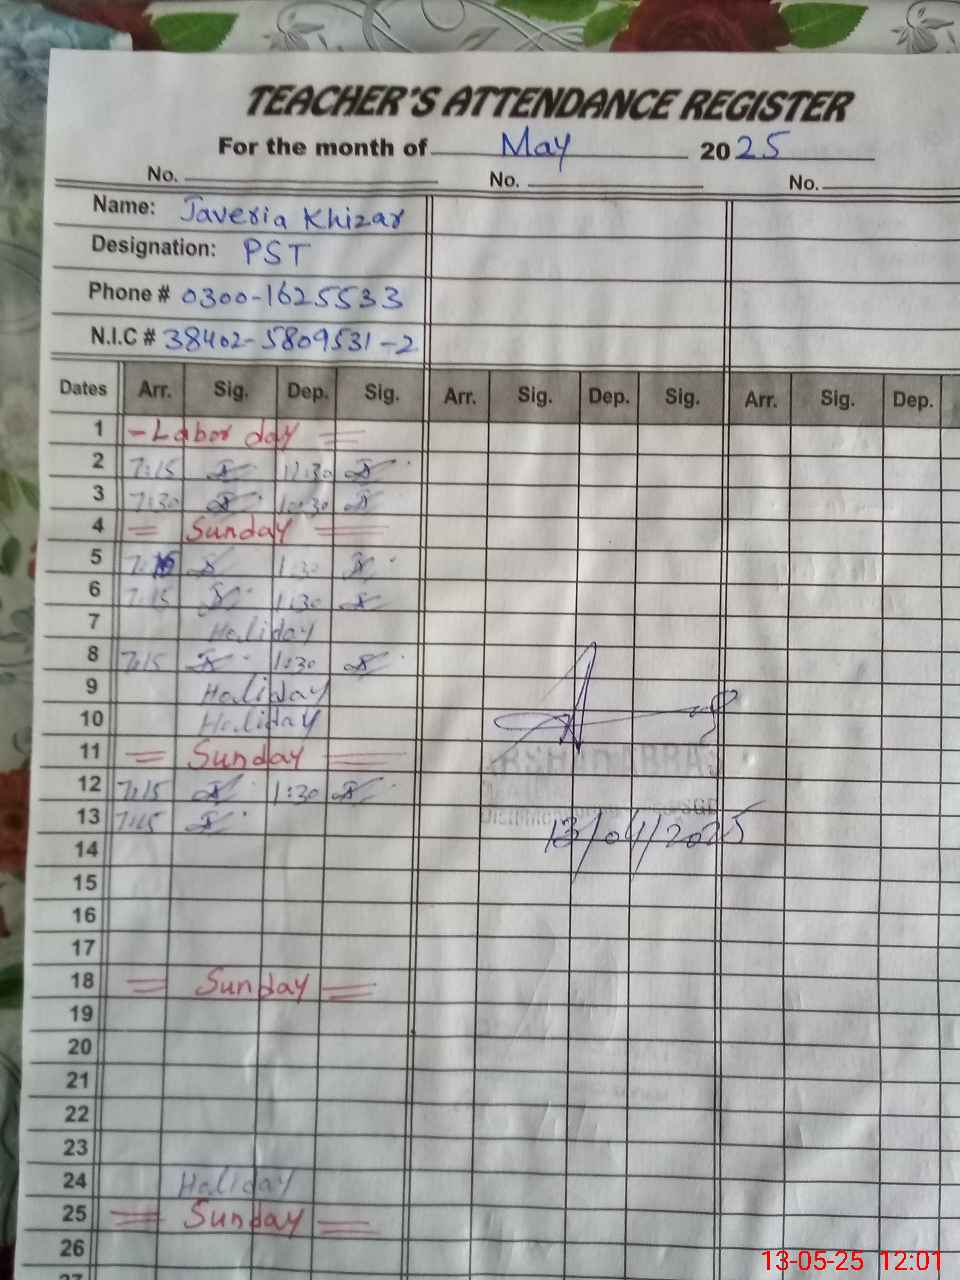 TEACHER'S ATTENDANCE REGISTER
For the month of May 2025
No. No. No.
Name: Javeria Khizar
Designation: PST
Phone # 0300-1625533
N.I.C # 38402-5809531-2
Dates Arr. Sig. Dep. Sig. Arr. Sig. Dep. Sig. Arr. Sig. Dep.
1 - Labor day =
2 7:15 11:30
3 7:30 10:30
4 = Sunday =
5 1:30
6 7:15 1:30
7 Haliday
8 7:15 1:30
9 Haliday
10 Haliday
11 = Sunday =
12 7:15 1:30
13 7:15
13/04/2025
14
15
16
17
18 = Sunday =
19
20
21
22
23
24 Haliday
25 = Sunday =
26
27
13-05-25 12:01